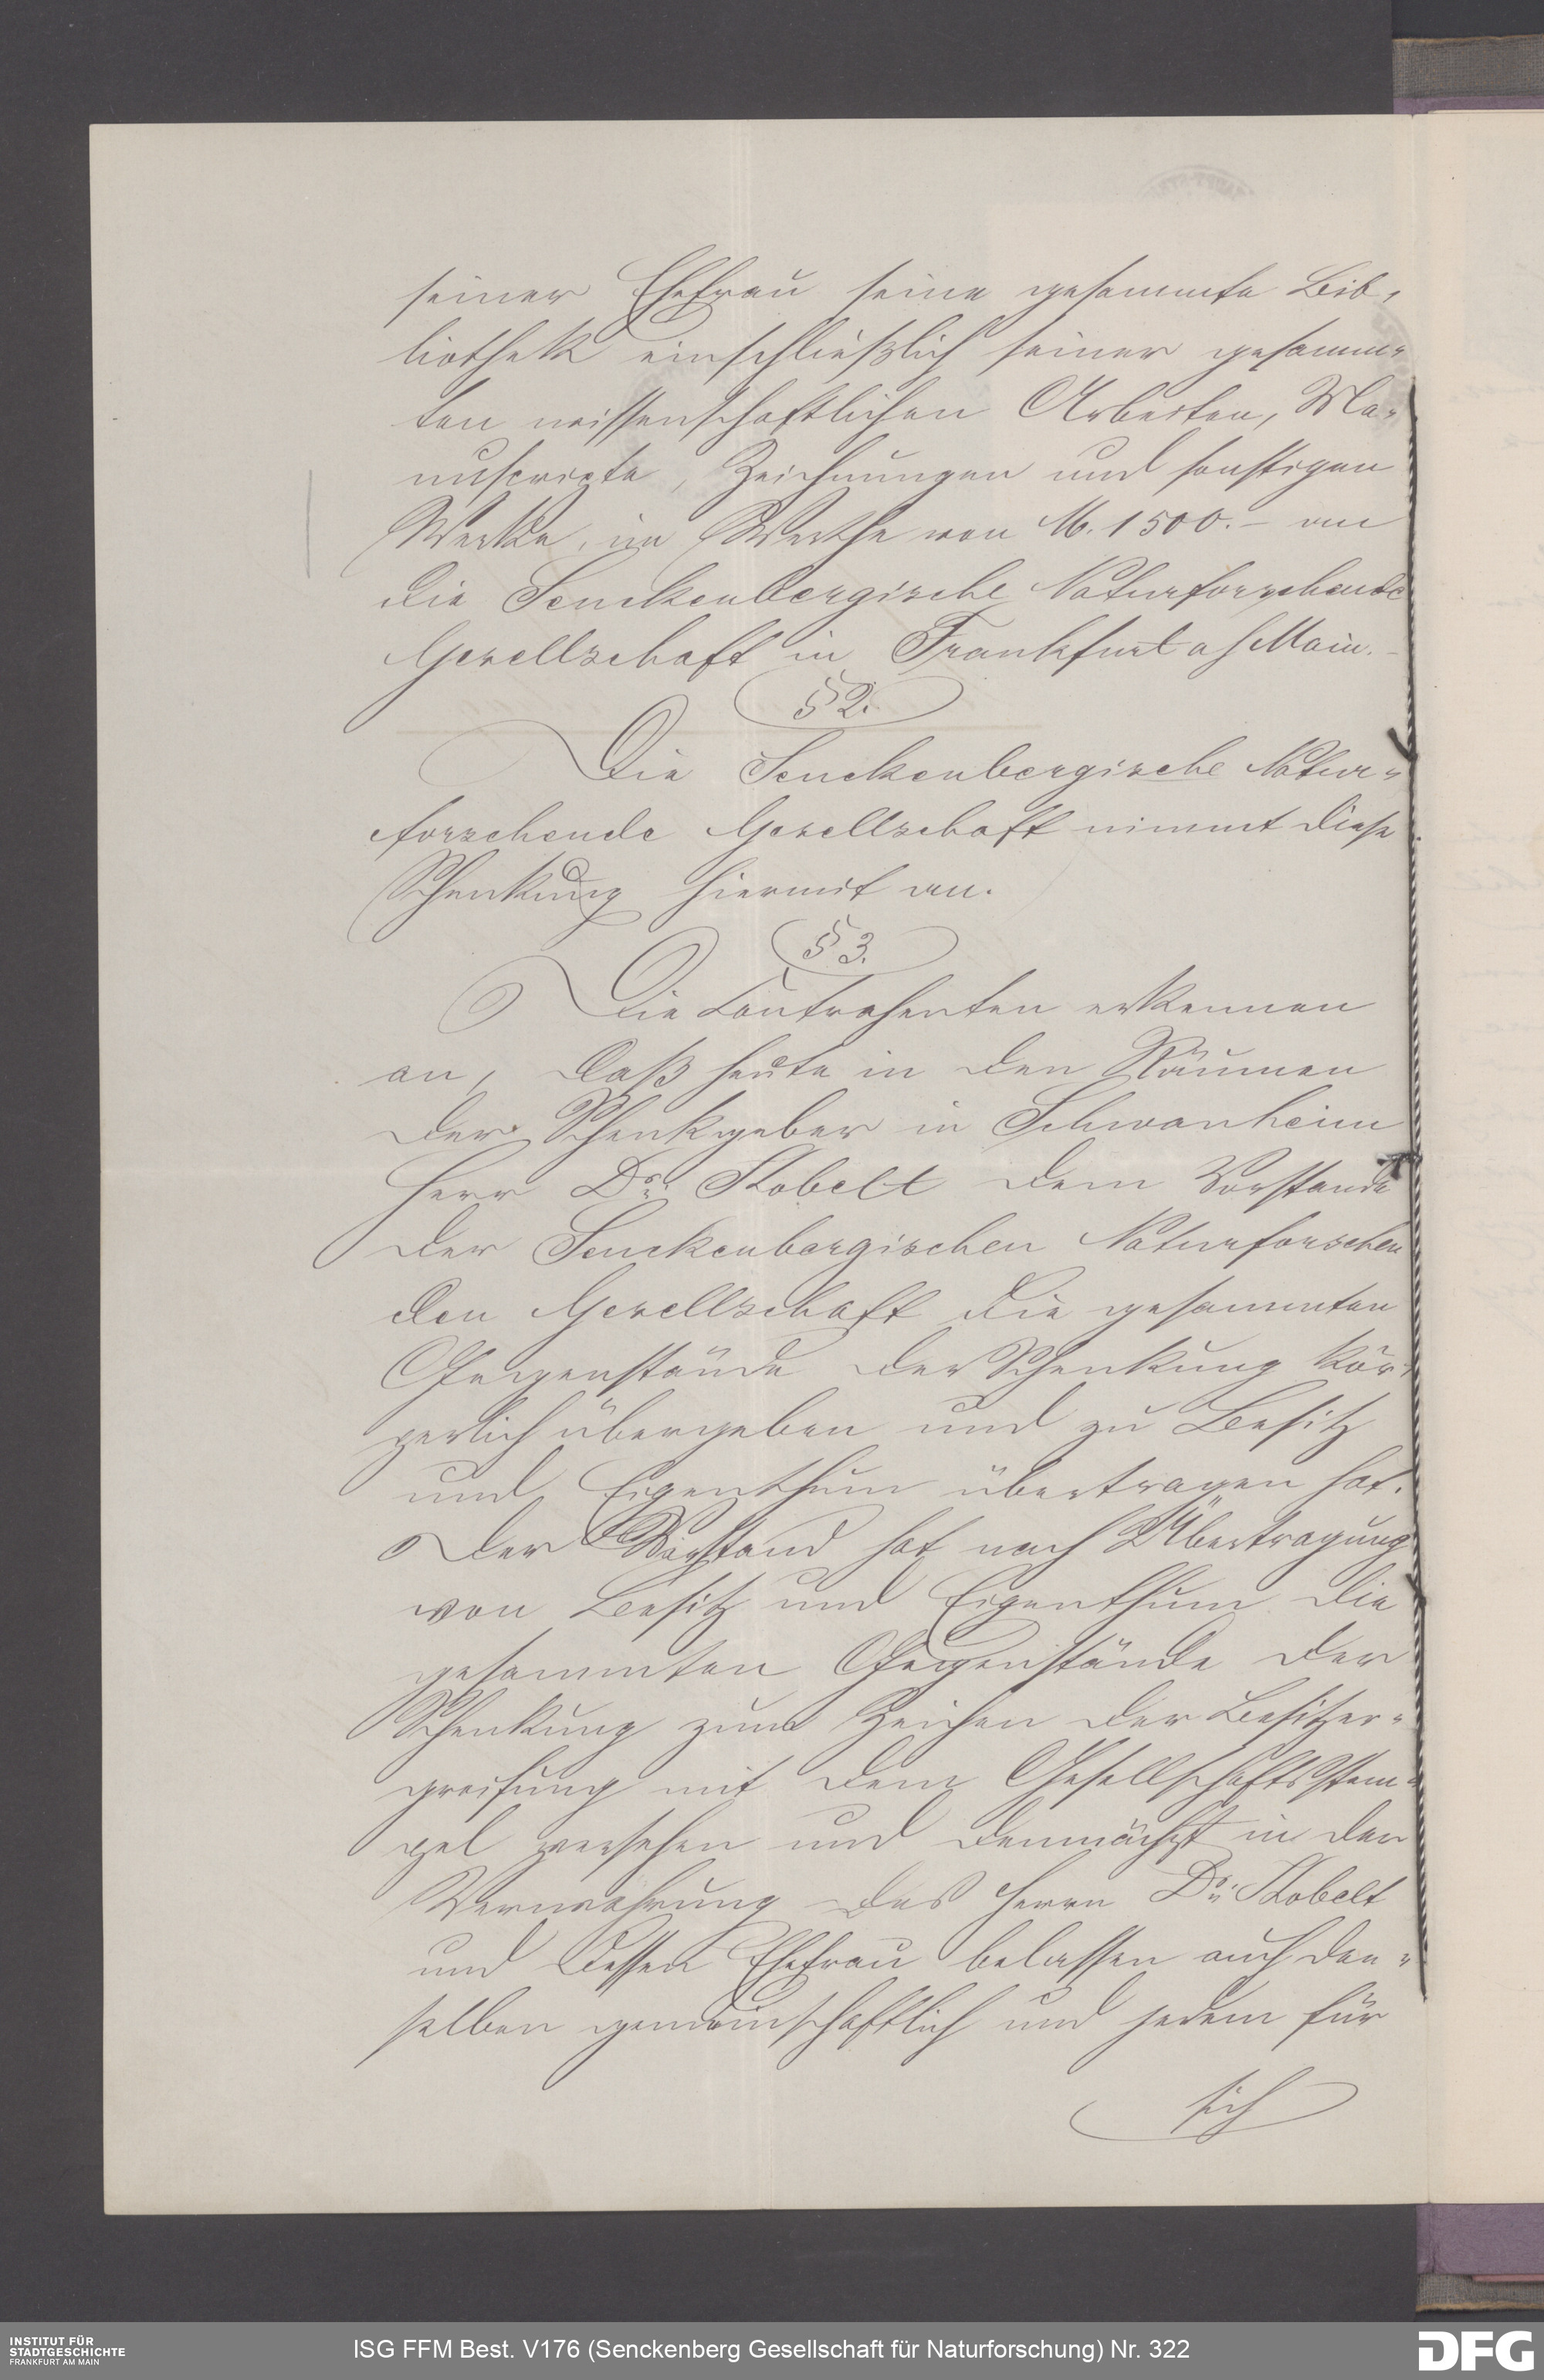 seiner Ehefrau seine gesammte Bib-
liothek einschließlich seiner gesamm-
ten wissenschaftlichen Arbeiten, Ma-
nuscripte, Zeichnungen und sonstigen
Werke, im Werthe von M. 1500.- an
die Senckenbergische Naturforschende
Gesellschaft in Frankfurt a/Main.-
§ 2.
Die Senckenbergische Natur-
forschende Gesellschaft nimmt diese
Schenkung hiermit an.
§ 3.
Die Contrahenten erkennen
an, daß heute in den Räumen
der Schenkgeber in Schwanheim
Herr Dr. Kobelt dem Vorstande
der Senckenbergischen Naturforschen
den Gesellschaft die gesammten
Gegenstände der Schenkung kör-
perlich übergeben und zu Besitz
und Eigenthum übertragen hat.
Der Vorstand hat nach Übertragung
von Besitz und Eigenthum die
gesammten Gegenstände der
Schenkung zum Zeichen der Besitzer-
greifung mit dem Gesellschaftsstem-
pel versehen und demnächst in der
Verwahrung des Herrn Dr. Kobelt
und dessen Ehefrau belassen auch den-
selben gemeinschaftlich und jedem für
sich
INSTITUT FÜR
STADTGESCHICHTE
FRANKFURT AM MAIN
ISG FFM Best. V176 (Senckenberg Gesellschaft für Naturforschung) Nr. 322
DFG